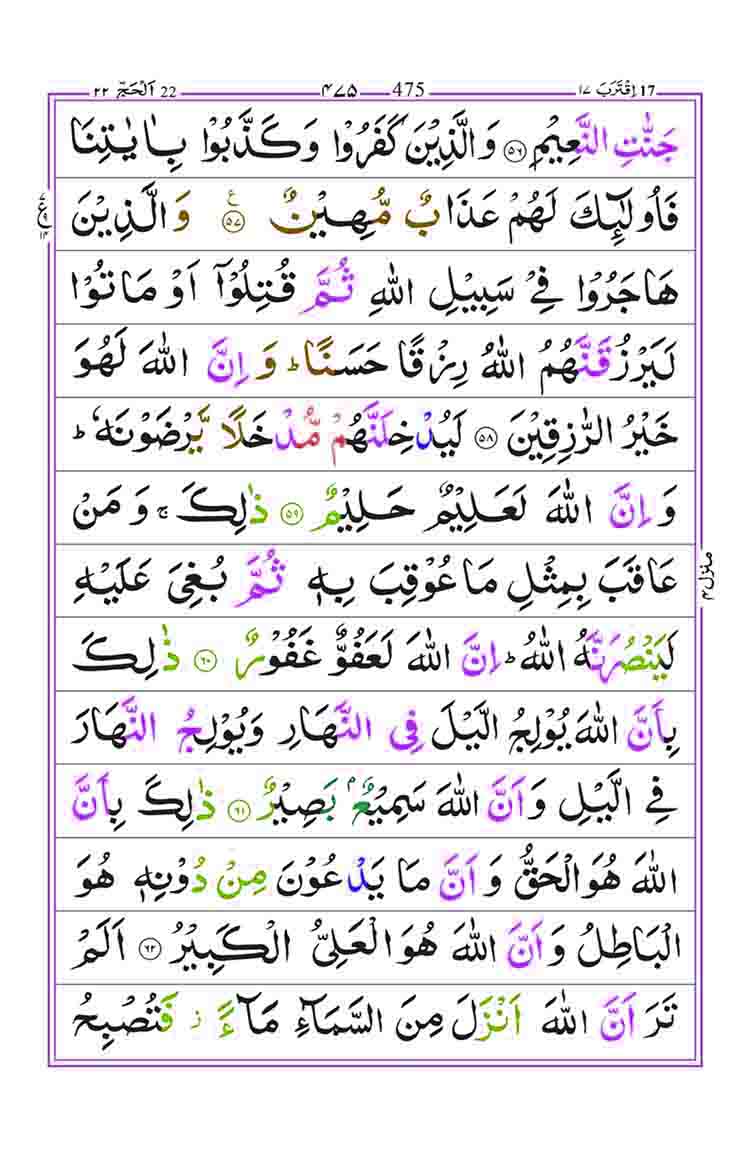 اِقْتَرَبَ ١٧ 17 ٤٧٥ 475 اَلْحَجّ ٢٢ 22
جَنّٰتِ النَّعِيْمِ ﴿٥٦﴾ وَالَّذِيْنَ كَفَرُوْا وَكَذَّبُوْا بِاٰيٰتِنَا
فَاُولٰٓئِكَ لَهُمْ عَذَابٌ مُّهِيْنٌ ﴿٥٧﴾ ع وَالَّذِيْنَ
ع ٧ ٩ ١٤
هَاجَرُوْا فِيْ سَبِيْلِ اللّٰهِ ثُمَّ قُتِلُوْٓا اَوْ مَاتُوْا
لَيَرْزُقَنَّهُمُ اللّٰهُ رِزْقًا حَسَنًا ؕ وَاِنَّ اللّٰهَ لَهُوَ
خَيْرُ الرّٰزِقِيْنَ ﴿٥٨﴾ لَيُدْخِلَنَّهُمْ مُّدْخَلًا يَّرْضَوْنَهٗ ؕ
وَاِنَّ اللّٰهَ لَعَلِيْمٌ حَلِيْمٌ ﴿٥٩﴾ ذٰلِكَ ۚ وَمَنْ
عَاقَبَ بِمِثْلِ مَا عُوْقِبَ بِهٖ ثُمَّ بُغِيَ عَلَيْهِ
منزل ٤
لَيَنْصُرَنَّهُ اللّٰهُ ؕ اِنَّ اللّٰهَ لَعَفُوٌّ غَفُوْرٌ ﴿٦٠﴾ ذٰلِكَ
بِاَنَّ اللّٰهَ يُوْلِجُ الَّيْلَ فِي النَّهَارِ وَيُوْلِجُ النَّهَارَ
فِي الَّيْلِ وَاَنَّ اللّٰهَ سَمِيْعٌۢ بَصِيْرٌ ﴿٦١﴾ ذٰلِكَ بِاَنَّ
اللّٰهَ هُوَ الْحَقُّ وَاَنَّ مَا يَدْعُوْنَ مِنْ دُوْنِهٖ هُوَ
الْبَاطِلُ وَاَنَّ اللّٰهَ هُوَ الْعَلِيُّ الْكَبِيْرُ ﴿٦٢﴾ اَلَمْ
تَرَ اَنَّ اللّٰهَ اَنْزَلَ مِنَ السَّمَآءِ مَآءً ز فَتُصْبِحُ